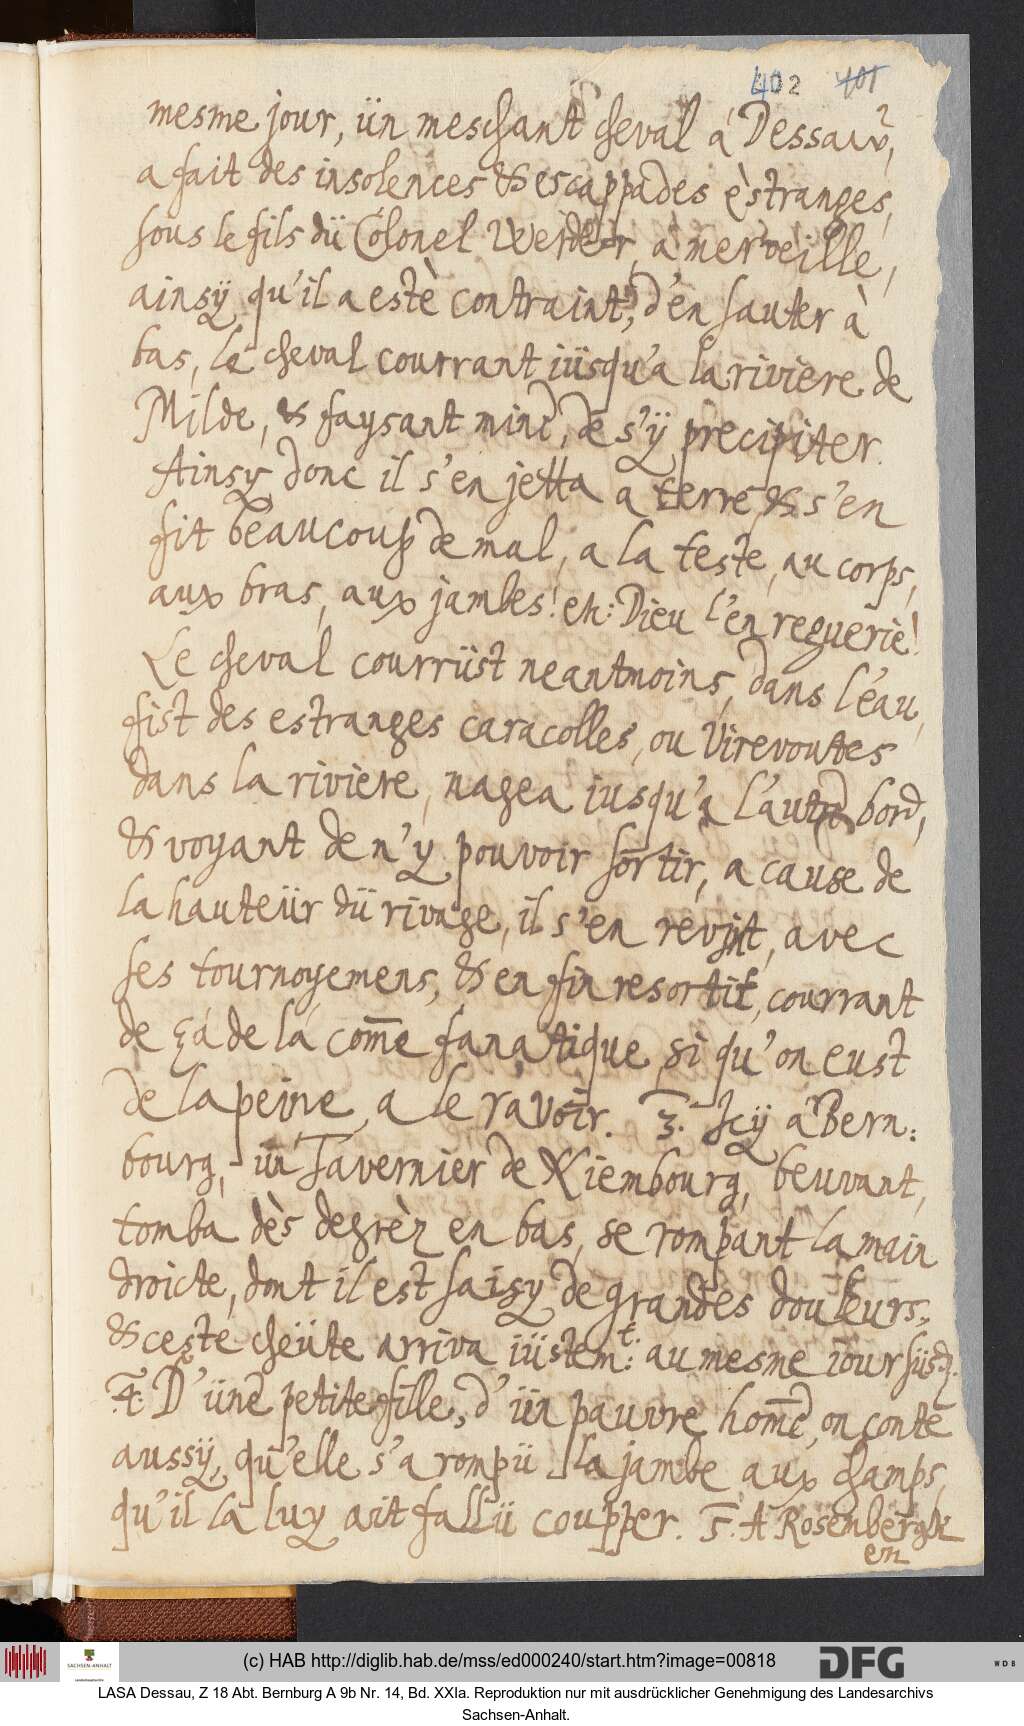 402 401
mesme jour, ün meschant cheval á Dessaw,
a fait des insolences & escappades èstranges,
sous le fils dü Colonel Werder, a merveille,
ainsÿ qu'il a estè contraint, d'en sauter à
bas, le cheval courrant iüsqu'a la riviere de
Milde, & faysant mine, de s'ÿ precipiter.
Ainsy donc il s'en jetta a terre, & s'en
fit beaucoup de mal, a la teste, au corps,
aux bras, aux jambes! eh: Dieu l'en reguerie!
Le cheval courrüst neantmoins, dans l'eau,
fist des estranges caracolles, ou Virevoutes
dans la riviere, nagea iusqu'a l'autre bord,
& voyant de n'y pouvoir sortir, a cause de
la hauteür dü rivage, il s'en revint, avec
ses tournoyemens, & en fin resortit, courrant
de ça de la, com̅e fanatique, si qu'on eust
de la peine, a le ravoir. 3. Icÿ a Bern:
bourg, ün Tavernier de Niembourg, beuvant,
tomba dès degrèz en bas, se rompant la main
droicte, dont il est saisy de grandes douleurs,
& ceste cheüte arriva iüstem:t au mesme iour süsd.
4. D'üne petite fille, d'ün pauvre hom̅e, on conte
aussÿ, qu'elle s'a rompü la jambe aux champs,
qu'il la luy ait fallü coupper. 5. A Rosenbergk
en
(c) HAB http://diglib.hab.de/mss/ed000240/start.htm?image=00818
SACHSEN-ANHALT
DFG
WDB
LASA Dessau, Z 18 Abt. Bernburg A 9b Nr. 14, Bd. XXIa. Reproduktion nur mit ausdrücklicher Genehmigung des Landesarchivs
Sachsen-Anhalt.